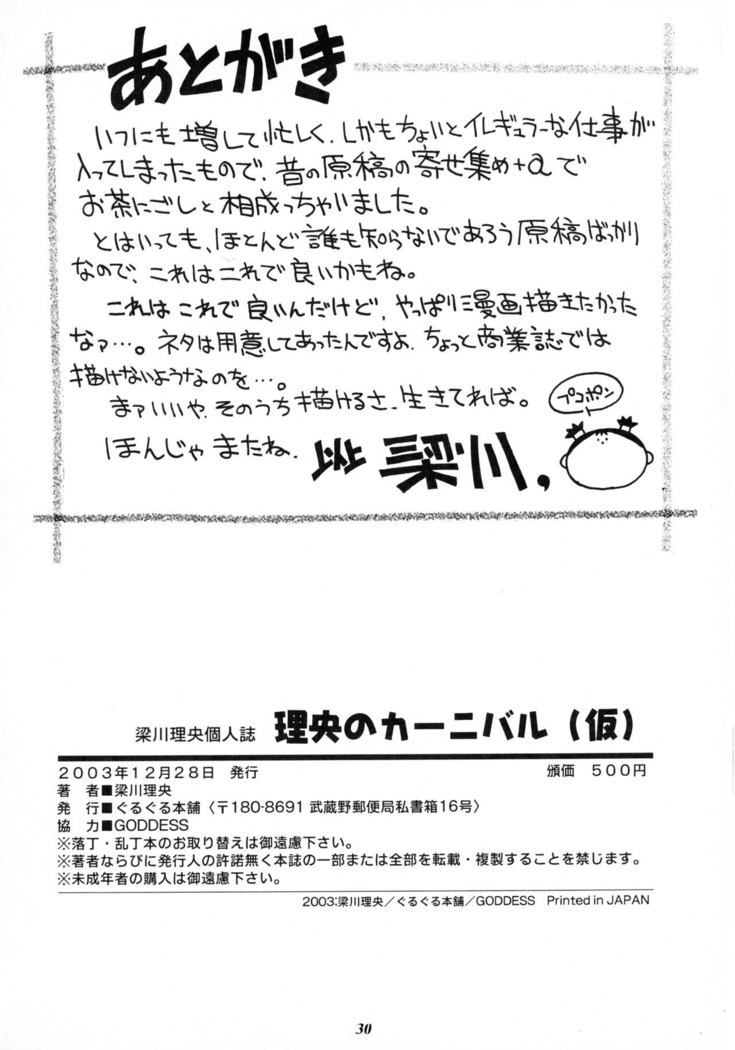 あとがき
いつにも増して忙しく、しかもちょいとイレギュラーな仕事が
入ってしまったもので、昔の原稿の寄せ集め+αで
お茶にごしと相成っちゃいました。
とはいっても、ほとんど誰も知らないであろう原稿ばっかり
なので、これはこれで良いかもね。
これはこれで良いんだけど、やっぱり漫画描きたかった
なァ…。ネタは用意してあったんですよ、ちょっと商業誌では
描けないようなのを…。
まァいいや、そのうち描けるさ、生きてれば。
プコポン
ほんじゃまたね、
梁川,
梁川理央個人誌 理央のカーニバル(仮)
2003年12月28日 発行 頒価 500円
著 者■梁川理央
発 行■ぐるぐる本舗〈〒180-8691 武蔵野郵便局私書箱16号〉
協 力■GODDESS
※落丁・乱丁本のお取り替えは御遠慮下さい。
※著者ならびに発行人の許諾無く本誌の一部または全部を転載・複製することを禁じます。
※未成年者の購入は御遠慮下さい。
2003:梁川理央／ぐるぐる本舗／GODDESS Printed in JAPAN
30